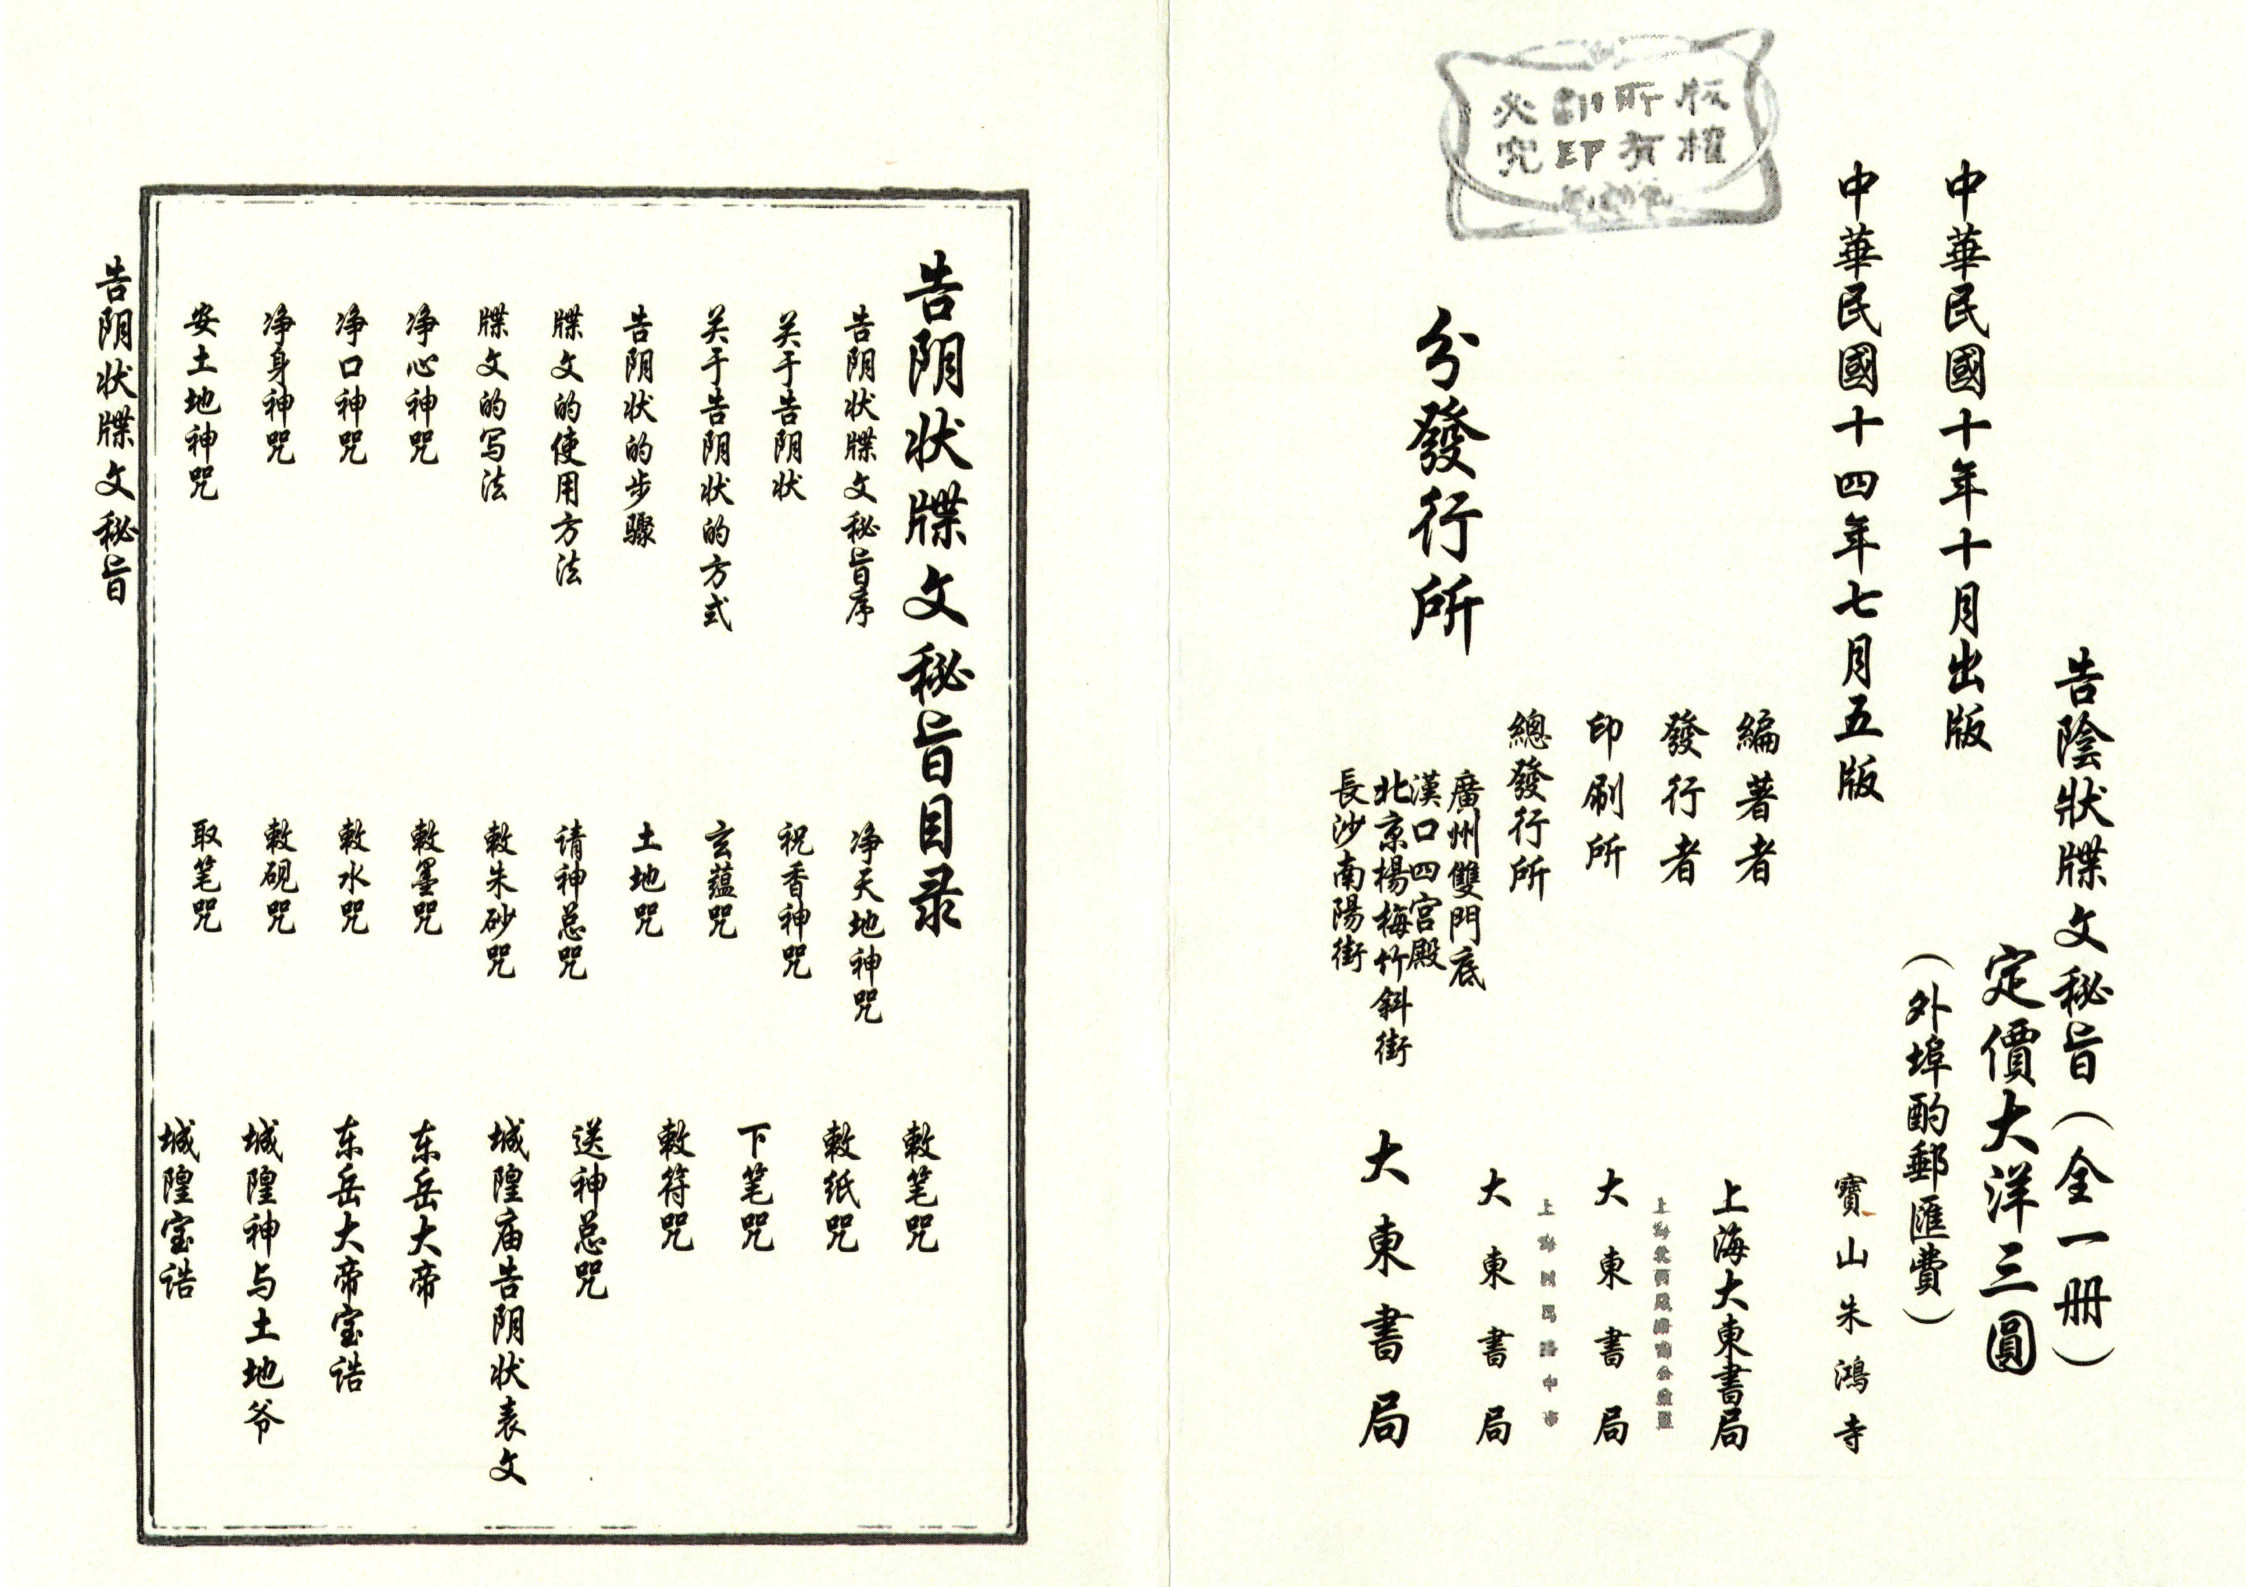 告陰狀牒文秘旨（全一册）
定價大洋三圓
（外埠酌郵匯費）
中華民國十年十月出版
中華民國十四年七月五版
版權
所有
翻印
必究
編著者
寶山朱鴻寺
發行者
上海大東書局
印刷所
大東書局
總發行所
上海四馬路中市
大東書局
分發行所
廣州雙門底
漢口四宫殿
北京楊梅竹斜街
長沙南陽街
大東書局
告阴状牒文秘旨目录
告阴状牒文秘旨序
关于告阴状
关于告阴状的方式
告阴状的步骤
牒文的使用方法
牒文的写法
净心神咒
净口神咒
净身神咒
安土地神咒
净天地神咒
祝香神咒
玄蕴咒
土地咒
请神总咒
敕朱砂咒
敕墨咒
敕水咒
敕砚咒
取笔咒
敕笔咒
敕纸咒
下笔咒
敕符咒
送神总咒
城隍庙告阴状表文
东岳大帝
东岳大帝宝诰
城隍神与土地爷
城隍宝诰
告阴状牒文秘旨